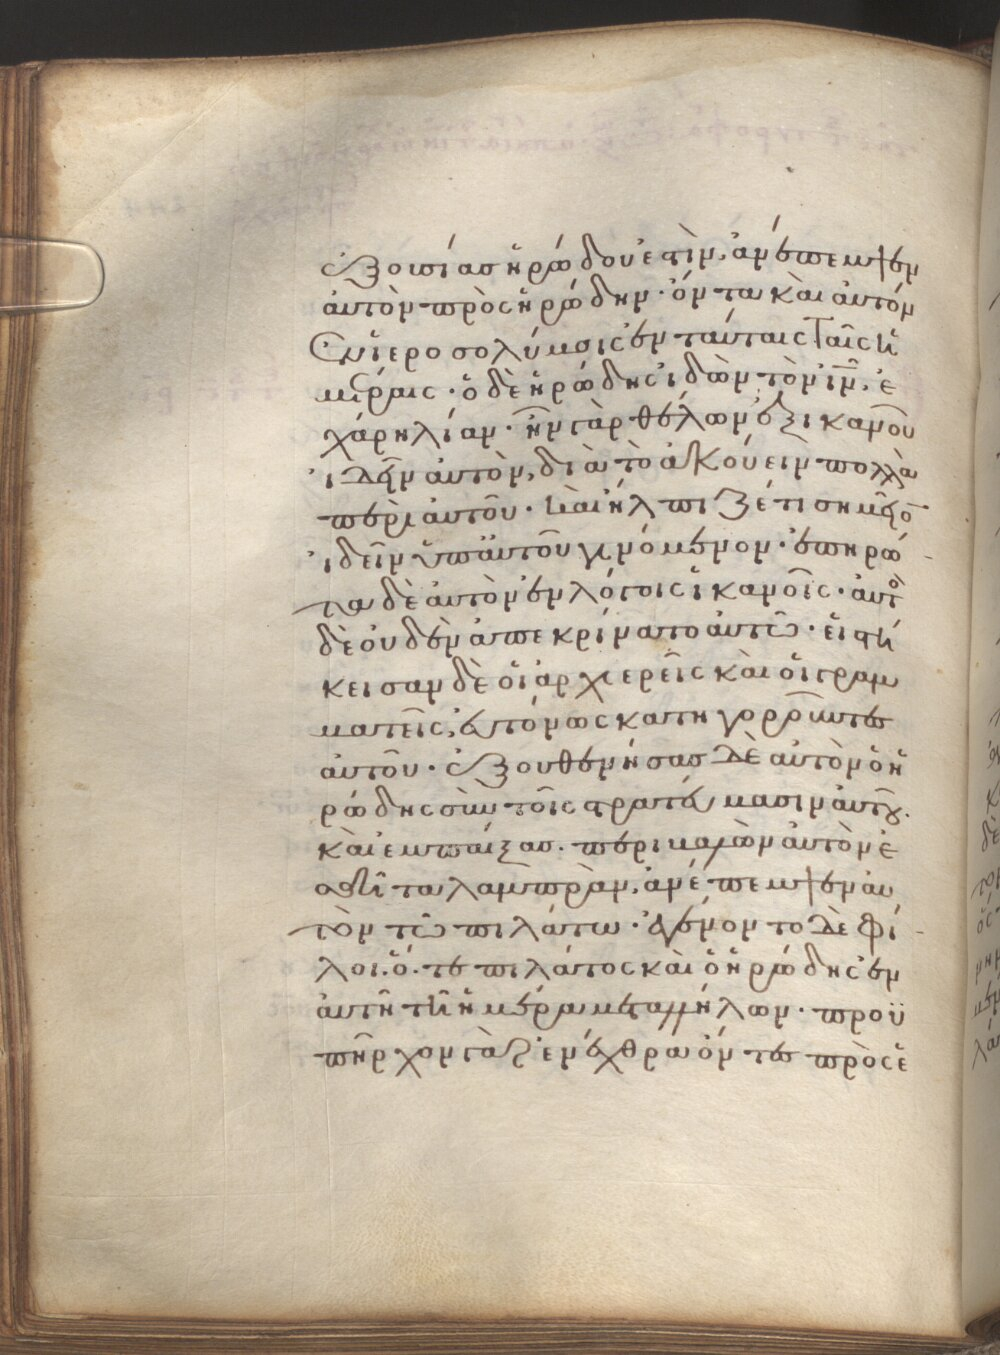 ἐξουσίας ἡρώδου ἐστὶν, ἀνέπεμψεν
αὐτὸν πρὸς ἡρώδην· ὄντα καὶ αὐτόν
ἐν ἱεροσολύμοις ἐν ταύταις ταῖς ἡ
μέραις· ὁ δὲ ἡρώδης ἰδὼν τὸν ἰν̄, ἐ
χάρη λίαν· ἦν γὰρ θέλων ἐξ ἱκανοῦ
ἰδεῖν αὐτὸν, διὰ τὸ ἀκούειν πολλὰ
περὶ αὐτοῦ· καὶ ἤλπιζέ τι σημεῖο
ἰδεῖν ὑπ' αὐτοῦ γινόμενον· ἐπηρώ
τα δὲ αὐτὸν ἐν λόγοις ἱκανοῖς· αὐτὸ
δὲ οὐδὲν ἀπεκρίνατο αὐτῶ· εἱστή
κεισαν δὲ οἱ ἀρχιερεῖς καὶ οἱ γραμ
ματεῖς, εὐτόνως κατηγοροῦντες
αὐτοῦ· ἐξουθενήσας δὲ αὐτὸν ὁ ἡ
ρώδης σὺν τοῖς στρατεύμασιν αὐτοῦ.
καὶ ἐμπαίξας. περιβαλὼν αὐτὸν ἐ
σθῆτα λαμπρὰν, ἀνέπεμψεν αὐ
τὸν τῶ πιλάτω· ἐγένοντο δὲ φί
λοι. ὅ. τε πιλάτος καὶ ὁ ἡρώδης ἐν
αὐτῆ τῆ ἡμέρα μεταλλήλων· προϋ
πῆρχον γὰρ ἐν ἔχθρα ὄντες πρὸς ἑ